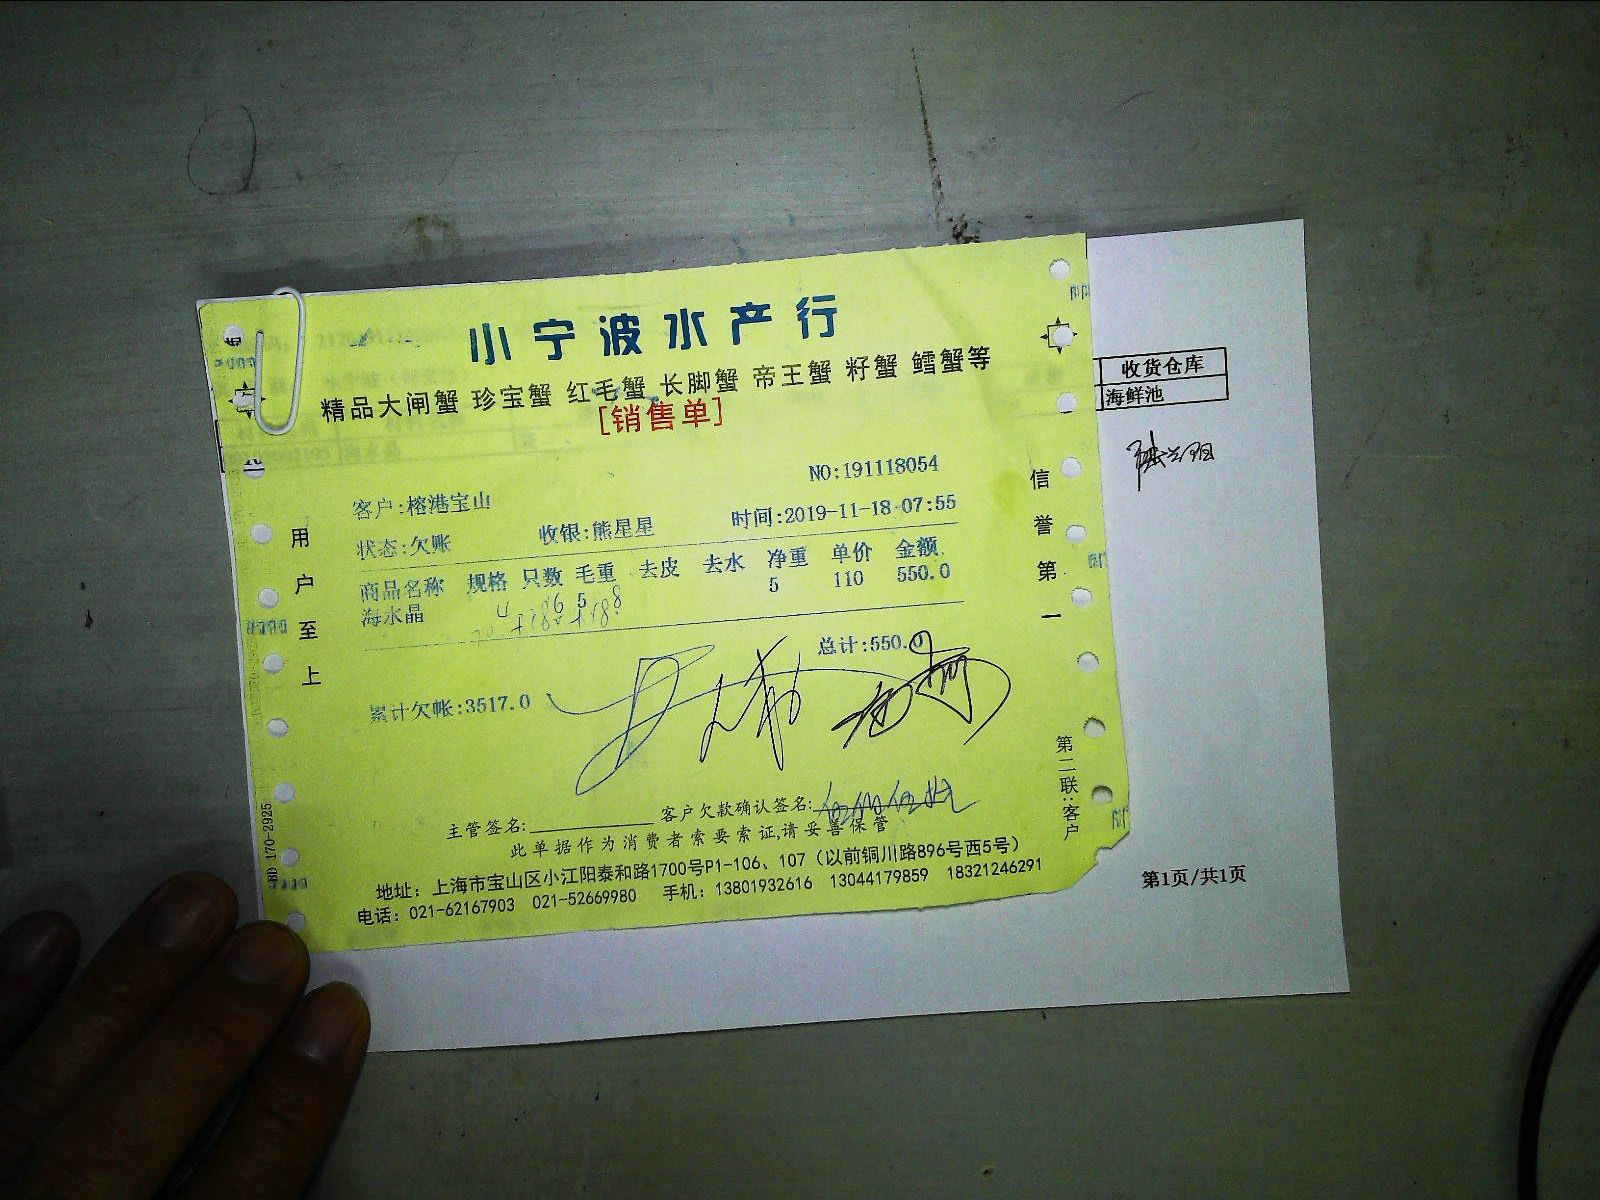 小宁波水产行
精品大闸蟹 珍宝蟹 红毛蟹 长脚蟹 帝王蟹 籽蟹 鳕蟹等
[销售单]
NO:191118054
客户:榕港宝山
状态:欠账 收银:熊星星 时间:2019-11-18 07:55
商品名称 规格 只数 毛重 去皮 去水 净重 单价 金额
海水晶 5 5 110 550.0
总计:550.0
累计欠帐:3517.0
主管签名: 客户欠款确认签名:
此单据作为消费者索要索证,请妥善保管
地址：上海市宝山区小江阳泰和路1700号P1-106、107（以前铜川路896号西5号）
电话：021-62167903 021-52669980 手机：13801932616 13044179859 18321246291
用户至上
信誉第一
第二联:客户
8D 170-2925
收货仓库
海鲜池
第1页/共1页